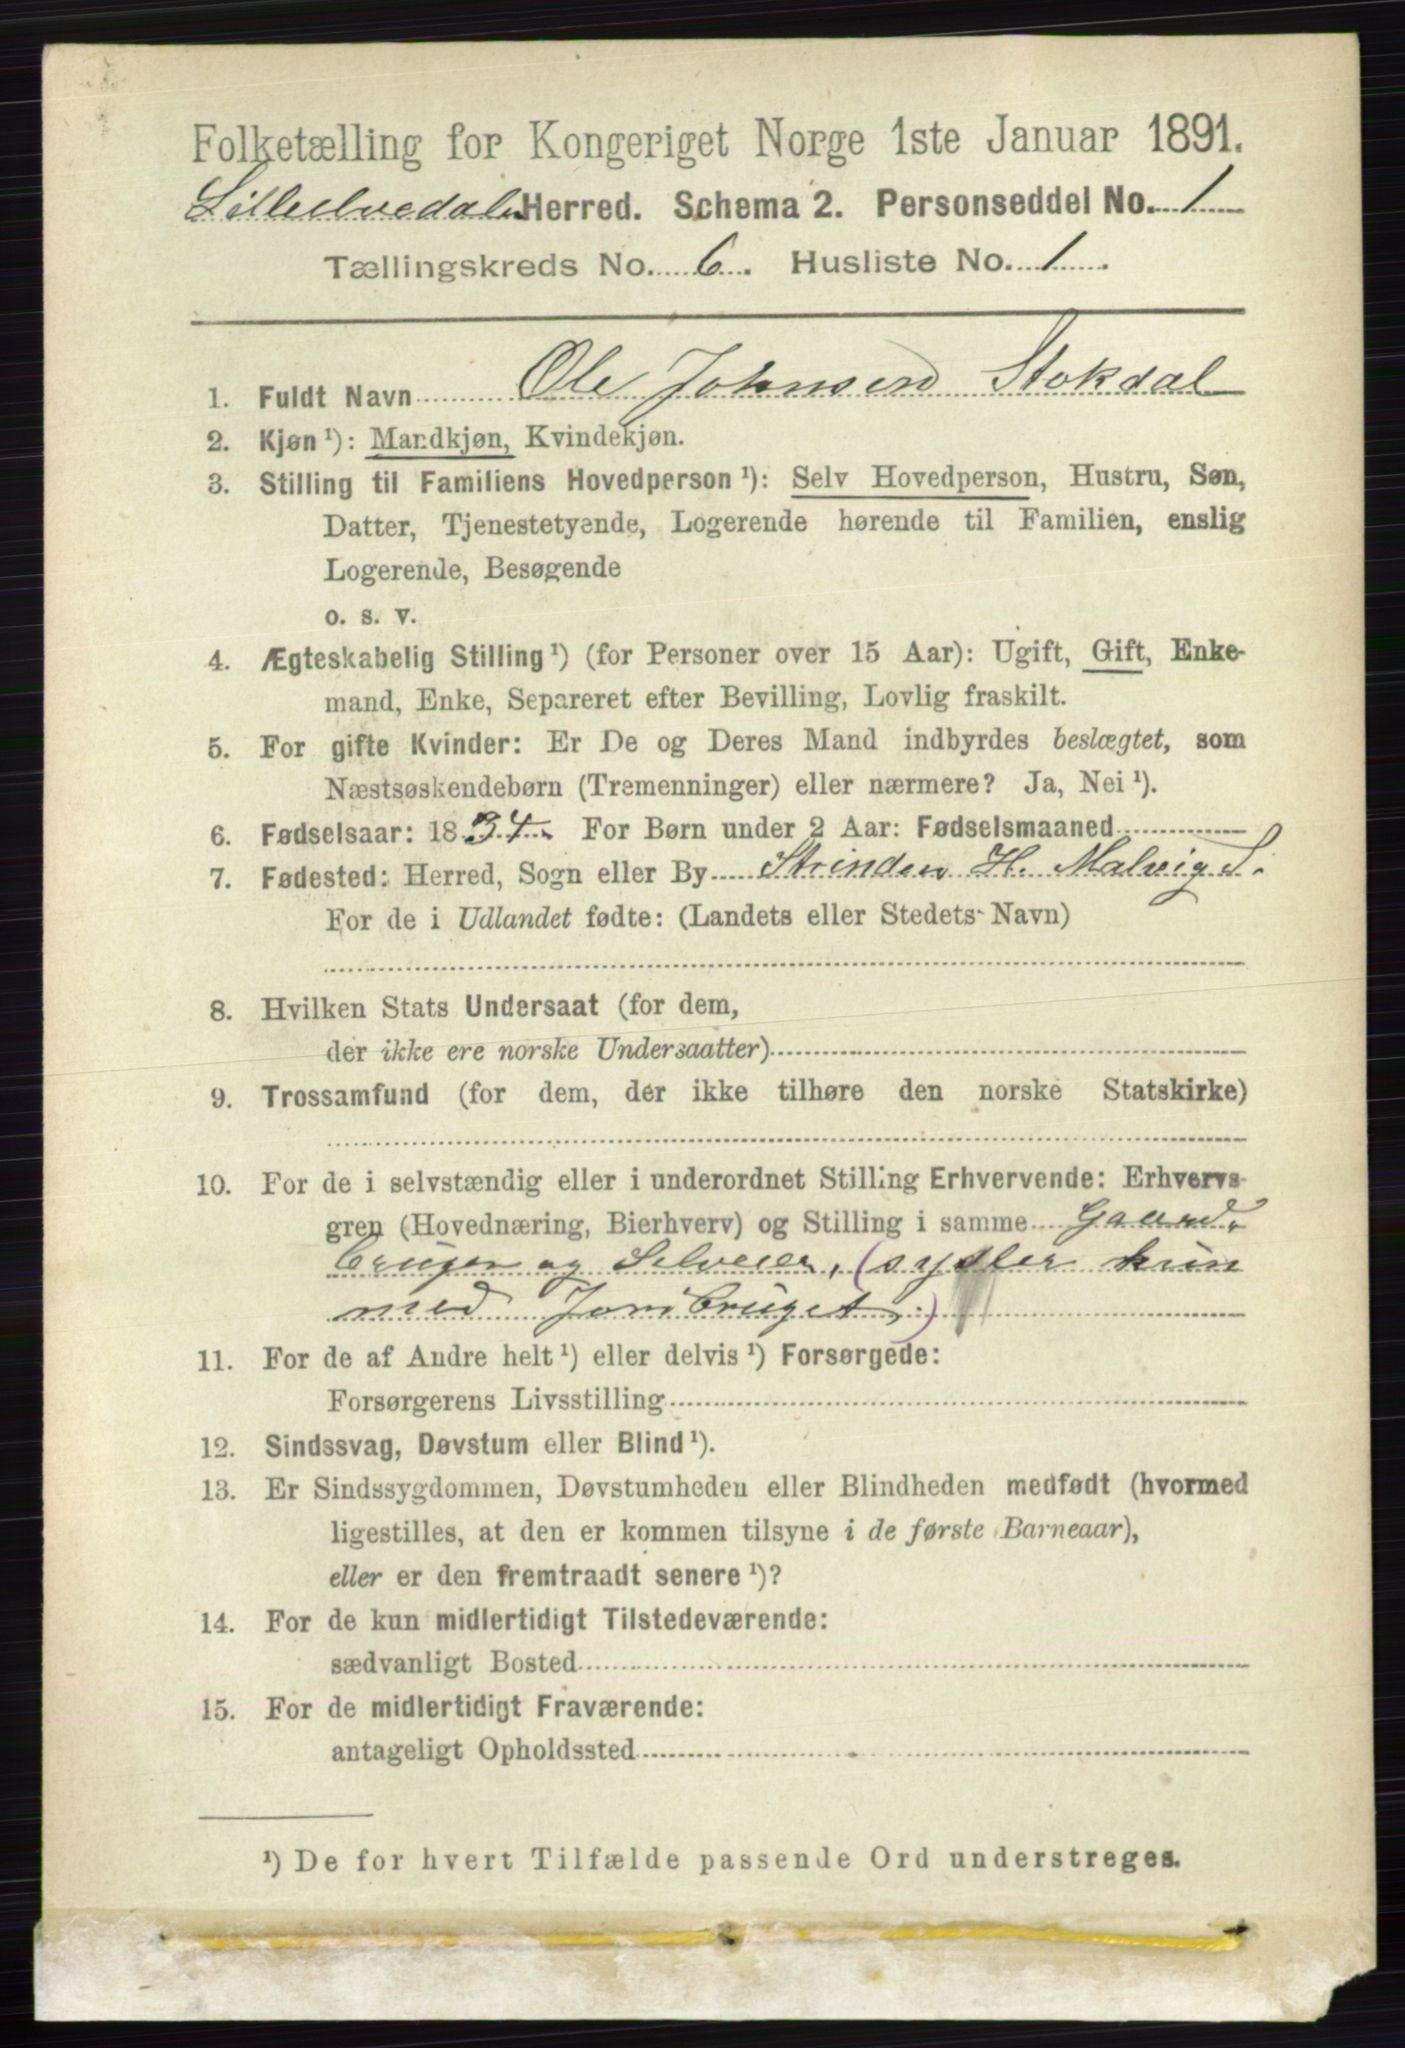 Folketælling for Kongeriget Norge 1ste Januar 1891.
Lilleelvedalen Herred. Schema 2. Personseddel No. 1
Tællingskreds No. 6. Husliste No. 1.
1. Fuldt Navn Ole Johnsen Stokdal
2. Kjøn ¹): Mandkjøn, Kvindekjøn.
3. Stilling til Familiens Hovedperson ¹): Selv Hovedperson, Hustru, Søn,
Datter, Tjenestetyende, Logerende hørende til Familien, enslig
Logerende, Besøgende
o. s. v.
4. Ægteskabelig Stilling ¹) (for Personer over 15 Aar): Ugift, Gift, Enke-
mand, Enke, Separeret efter Bevilling, Lovlig fraskilt.
5. For gifte Kvinder: Er De og Deres Mand indbyrdes beslægtet, som
Næstsøskendebørn (Tremenninger) eller nærmere? Ja, Nei ¹).
6. Fødselsaar: 1834. For Børn under 2 Aar: Fødselsmaaned
7. Fødested: Herred, Sogn eller By Strinden H. Malvig S.
For de i Udlandet fødte: (Landets eller Stedets Navn)
8. Hvilken Stats Undersaat (for dem,
der ikke ere norske Undersaatter)
9. Trossamfund (for dem, der ikke tilhøre den norske Statskirke)
10. For de i selvstændig eller i underordnet Stilling Erhvervende: Erhvervs-
gren (Hovednæring, Bierhverv) og Stilling i samme Gaard-
bruger og Selveier, (sysler kun
med Jordbruget.)
11. For de af Andre helt ¹) eller delvis ¹) Forsørgede:
Forsørgerens Livsstilling
12. Sindssvag, Døvstum eller Blind ¹).
13. Er Sindssygdommen, Døvstumheden eller Blindheden medfødt (hvormed
ligestilles, at den er kommen tilsyne i de første Barneaar),
eller er den fremtraadt senere ¹)?
14. For de kun midlertidigt Tilstedeværende:
sædvanligt Bosted
15. For de midlertidigt Fraværende:
antageligt Opholdssted
¹) De for hvert Tilfælde passende Ord understreges.